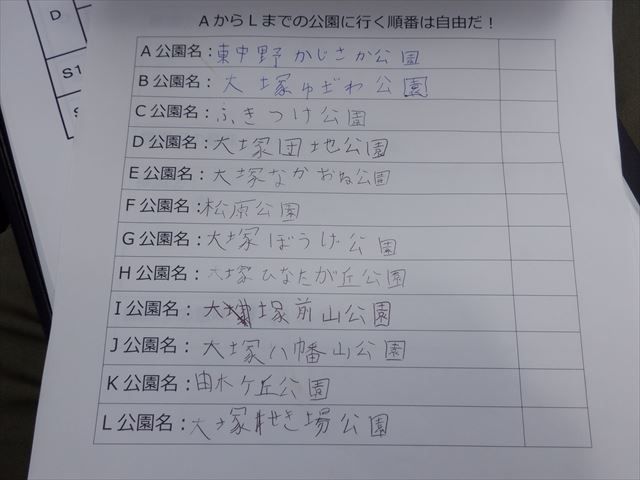 D
S1
S
AからLまでの公園に行く順番は自由だ！
A公園名：東中野かじさか公園
B公園名：大塚ゅざわ公園
C公園名：ふきつけ公園
D公園名：大塚団地公園
E公園名：大塚ながおね公園
F公園名：松原公園
G公園名：大塚ぼうけ公園
H公園名：大塚ひなたが丘公園
I公園名：大塚前山公園
J公園名：大塚八幡山公園
K公園名：由木ケ丘公園
L公園名：大塚せき場公園